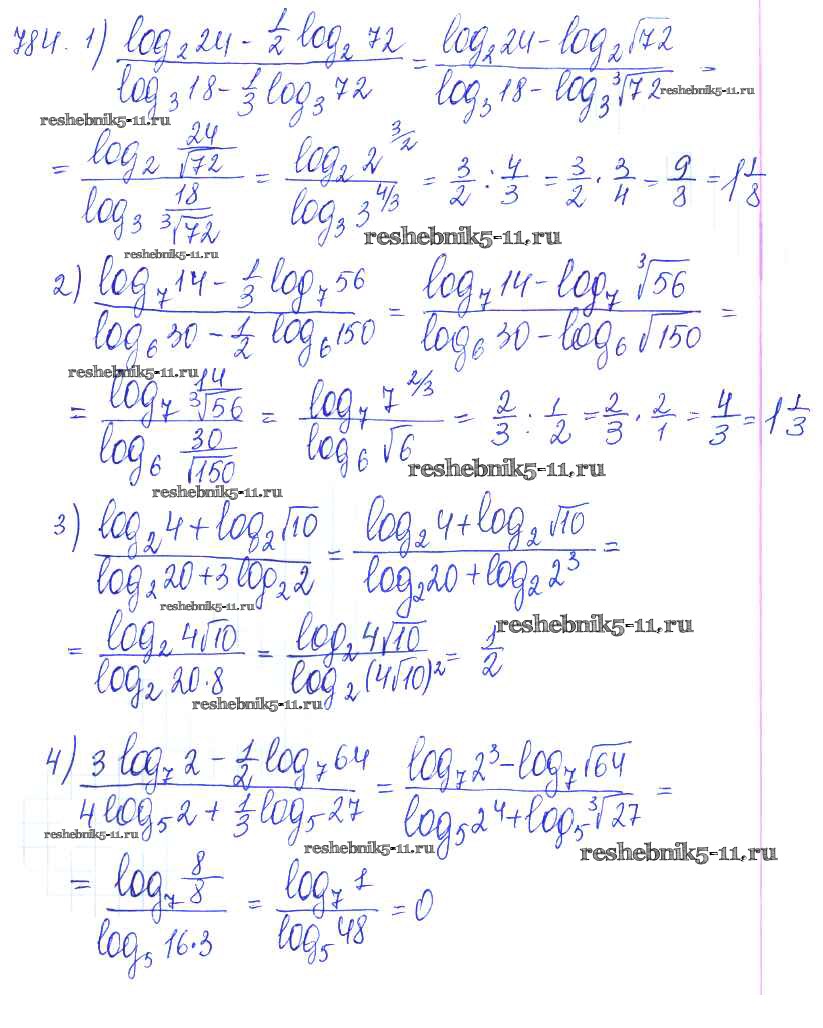 784. 1) (log₂24 - 1/2 log₂72)/(log₃18 - 1/3 log₃72) = (log₂24 - log₂√72)/(log₃18 - log₃∛72) =
reshebnik5-11.ru reshebnik5-11.ru
= (log₂ 24/√72)/(log₃ 18/∛72) = (log₂2^(3/2))/(log₃3^(4/3)) = 3/2 : 4/3 = 3/2 · 3/4 = 9/8 = 1 1/8
reshebnik5-11.ru reshebnik5-11.ru
2) (log₇14 - 1/3 log₇56)/(log₆30 - 1/2 log₆150) = (log₇14 - log₇∛56)/(log₆30 - log₆√150) =
reshebnik5-11.ru
= (log₇ 14/∛56)/(log₆ 30/√150) = (log₇7^(2/3))/(log₆√6) = 2/3 : 1/2 = 2/3 · 2/1 = 4/3 = 1 1/3
reshebnik5-11.ru reshebnik5-11.ru
3) (log₂4 + log₂√10)/(log₂20 + 3log₂2) = (log₂4 + log₂√10)/(log₂20 + log₂2³) =
reshebnik5-11.ru reshebnik5-11.ru
= (log₂4√10)/(log₂20·8) = (log₂4√10)/(log₂(4√10)²) = 1/2
reshebnik5-11.ru
4) (3log₇2 - 1/2 log₇64)/(4log₅2 + 1/3 log₅27) = (log₇2³ - log₇√64)/(log₅2⁴ + log₅∛27) =
reshebnik5-11.ru reshebnik5-11.ru reshebnik5-11.ru
= (log₇ 8/8)/(log₅16·3) = (log₇1)/(log₅48) = 0